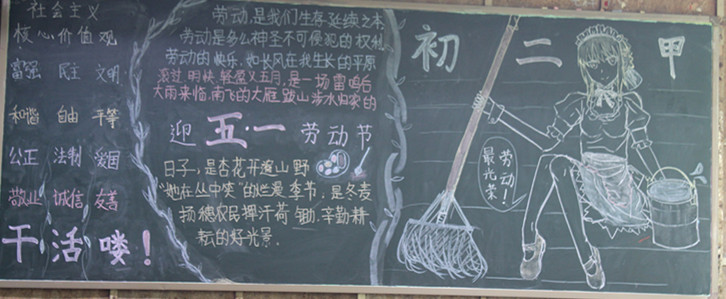 社会主义
核心价值观
富强 民主 文明
和谐 自由 平等
公正 法制 爱国
敬业 诚信 友善
干活喽！
劳动,是我们生存延续之本
劳动是多么神圣不可侵犯的权利
劳动的快乐,如长风在我生长的平原
滚过,明快,轻盈.五月,是一场雷鸣后
大雨来临,南飞的大雁,跋山涉水归家的
迎五·一劳动节
日子,是杏花开遍山野
"她在丛中笑"的烂漫季节,是冬麦
扬穗农民挥汗荷锄.辛勤耕
耘的好光景.
初二甲
劳动！
最光荣